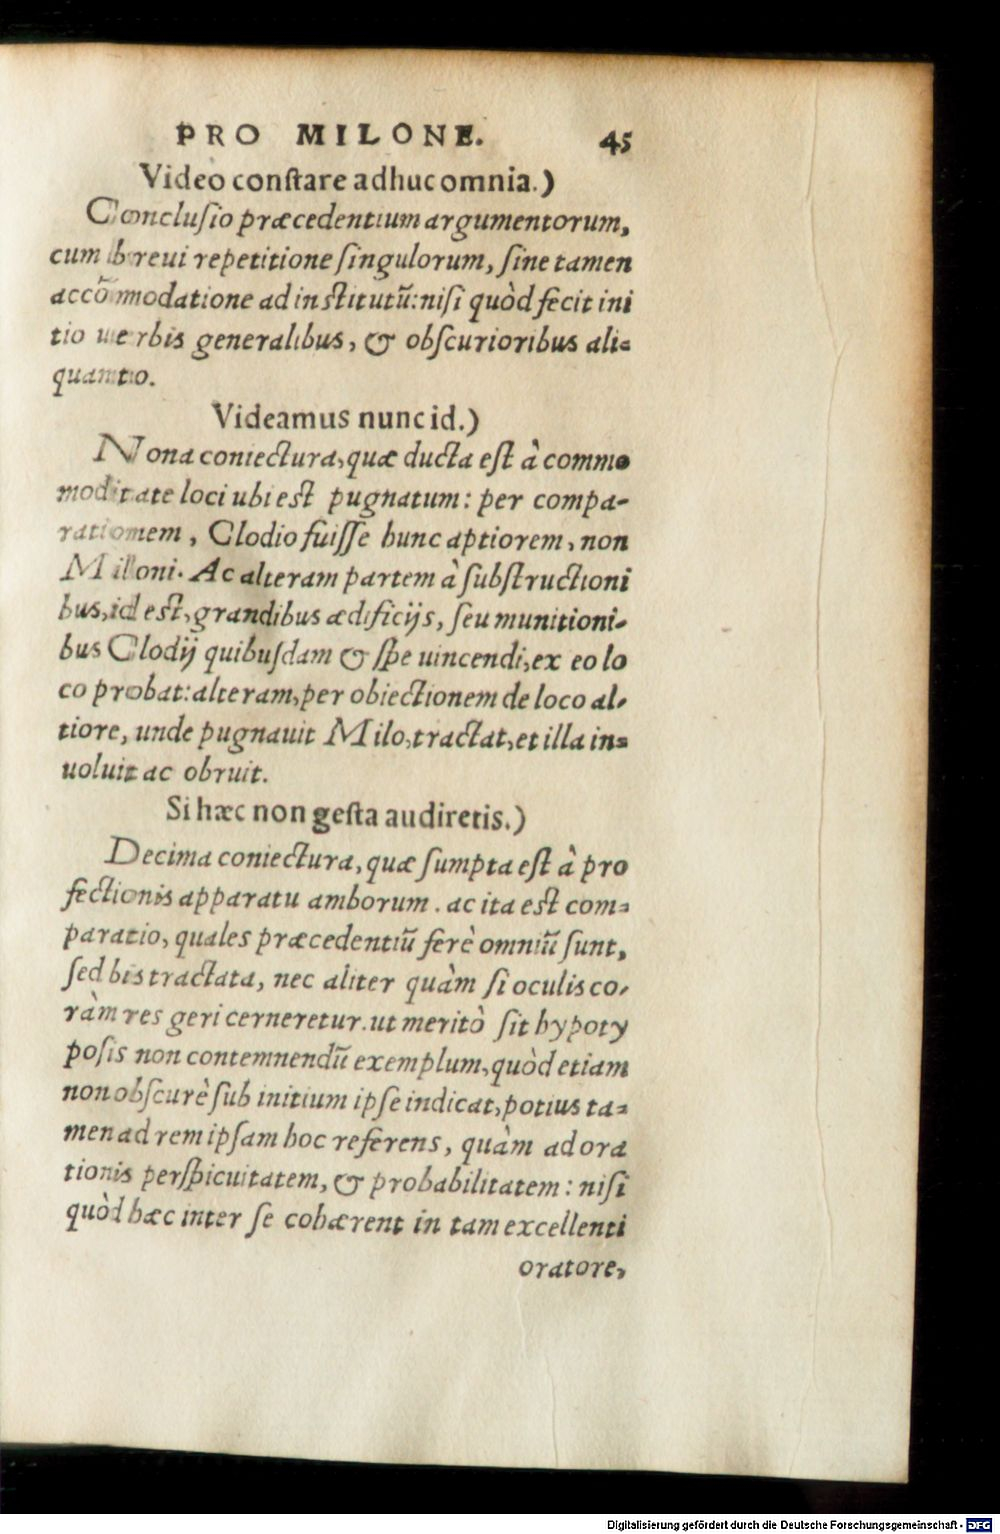 PRO MILONE. 45
Video constare adhuc omnia.)
Conclusio præcedentium argumentorum,
cum breui repetitione singulorum, sine tamen
accõmodatione ad institutũ: nisi quòd fecit ini
tio uerbis generalibus, & obscurioribus ali-
quanto.
Videamus nunc id.)
Nona coniectura, quæ ducta est à commo
moditate loci ubi est pugnatum: per compa-
rationem, Clodio fuisse hunc aptiorem, non
Miloni. Ac alteram partem à substructioni
bus, id est, grandibus ædificijs, seu munitioni-
bus Clodij quibusdam & spe uincendi, ex eo lo
co probat: alteram, per obiectionem de loco al-
tiore, unde pugnauit Milo, tractat, et illa in-
uoluit ac obruit.
Si hæc non gesta audiretis.)
Decima coniectura, quæ sumpta est à pro
fectionis apparatu amborum. ac ita est com-
paratio, quales præcedentiũ ferè omniũ sunt,
sed bis tractata, nec aliter quàm si oculis co-
ràm res geri cerneretur. ut meritò sit hypoty
posis non contemnendũ exemplum, quòd etiam
non obscurè sub initium ipse indicat, potius ta-
men ad rem ipsam hoc referens, quàm ad ora
tionis perspicuitatem, & probabilitatem: nisi
quòd hæc inter se cohærent in tam excellenti
oratore,
Digitalisierung gefördert durch die Deutsche Forschungsgemeinschaft - DFG